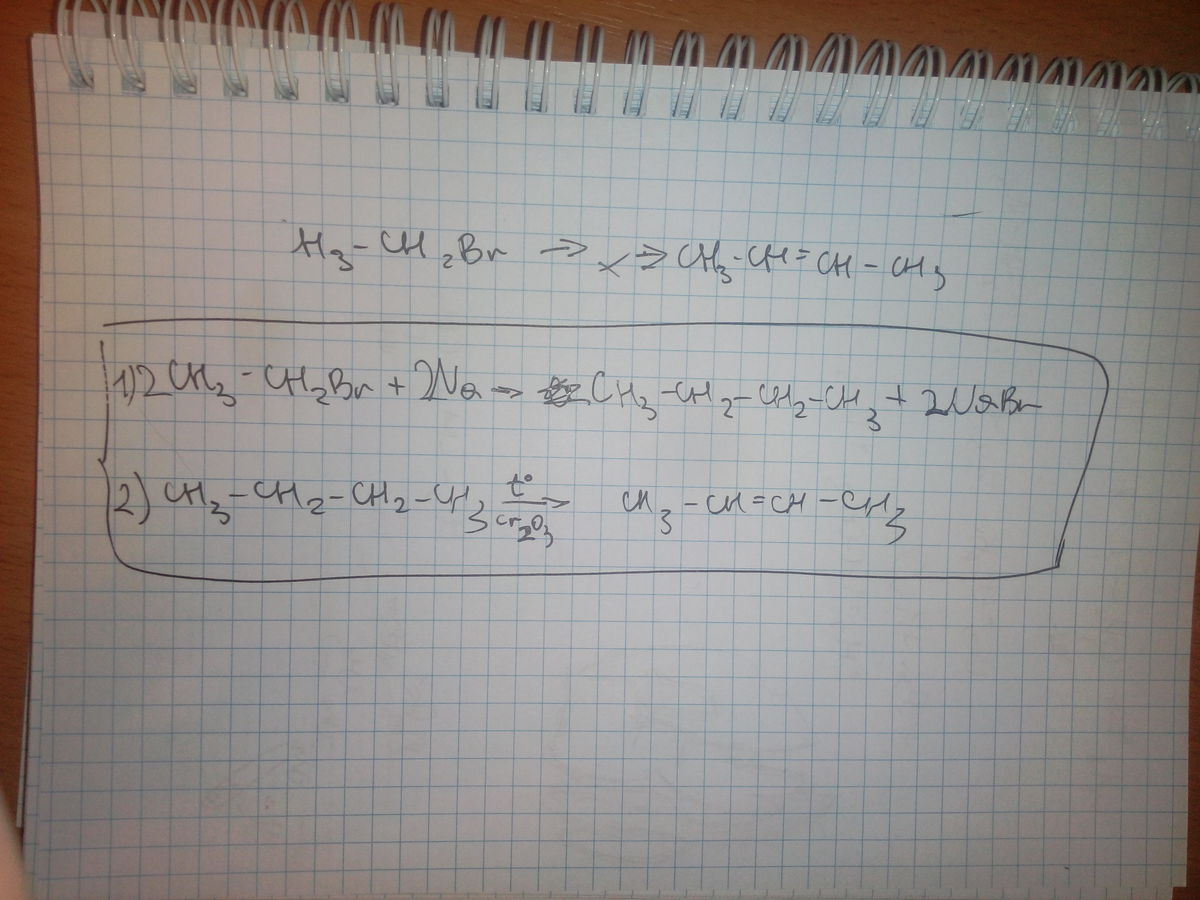 H₃-CH₂Br → X → CH₃-CH=CH-CH₃
1) 2CH₃-CH₂Br + 2Na → CH₃-CH₂-CH₂-CH₃ + 2NaBr
2) CH₃-CH₂-CH₂-CH₃ t° → Cr₂O₃ CH₃-CH=CH-CH₃